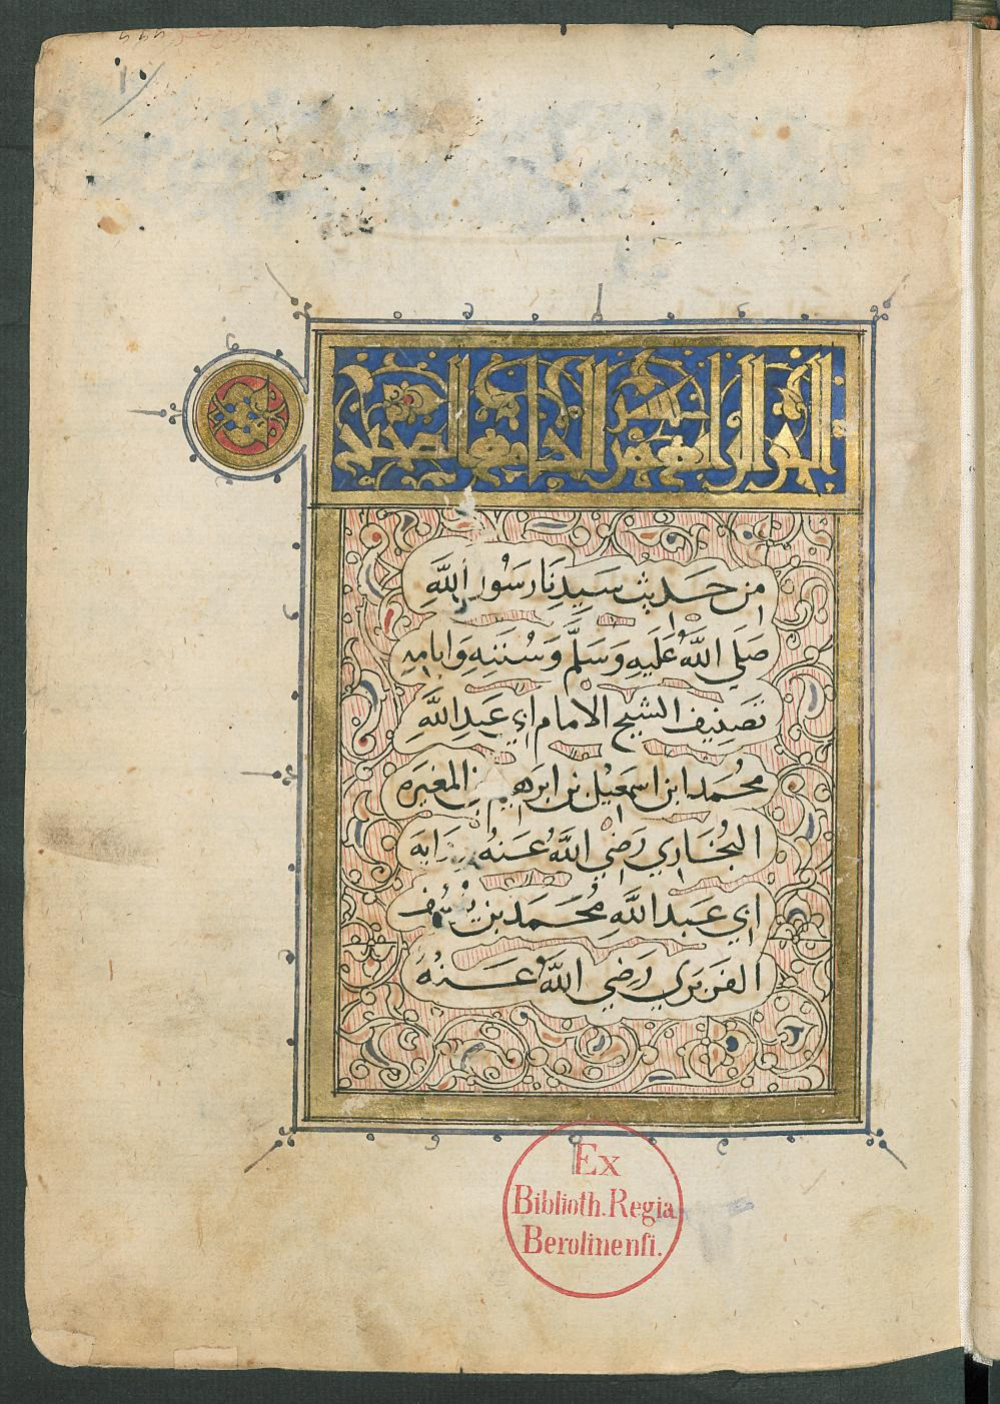 الجزء الرابع عشر من الجامع الصحيح
من حديث سيدنا رسول الله
صلى الله عليه وسلم وسننه وايامه
تصنيف الشيخ الامام ابي عبد الله
محمد ابن اسمعيل بن ابرهيم بن المغيره
البخاري رضي الله عنه رواية
ابي عبد الله محمد بن يوسف
الفربري رضي الله عنه
Ex
Biblioth. Regia
Berolinensi.